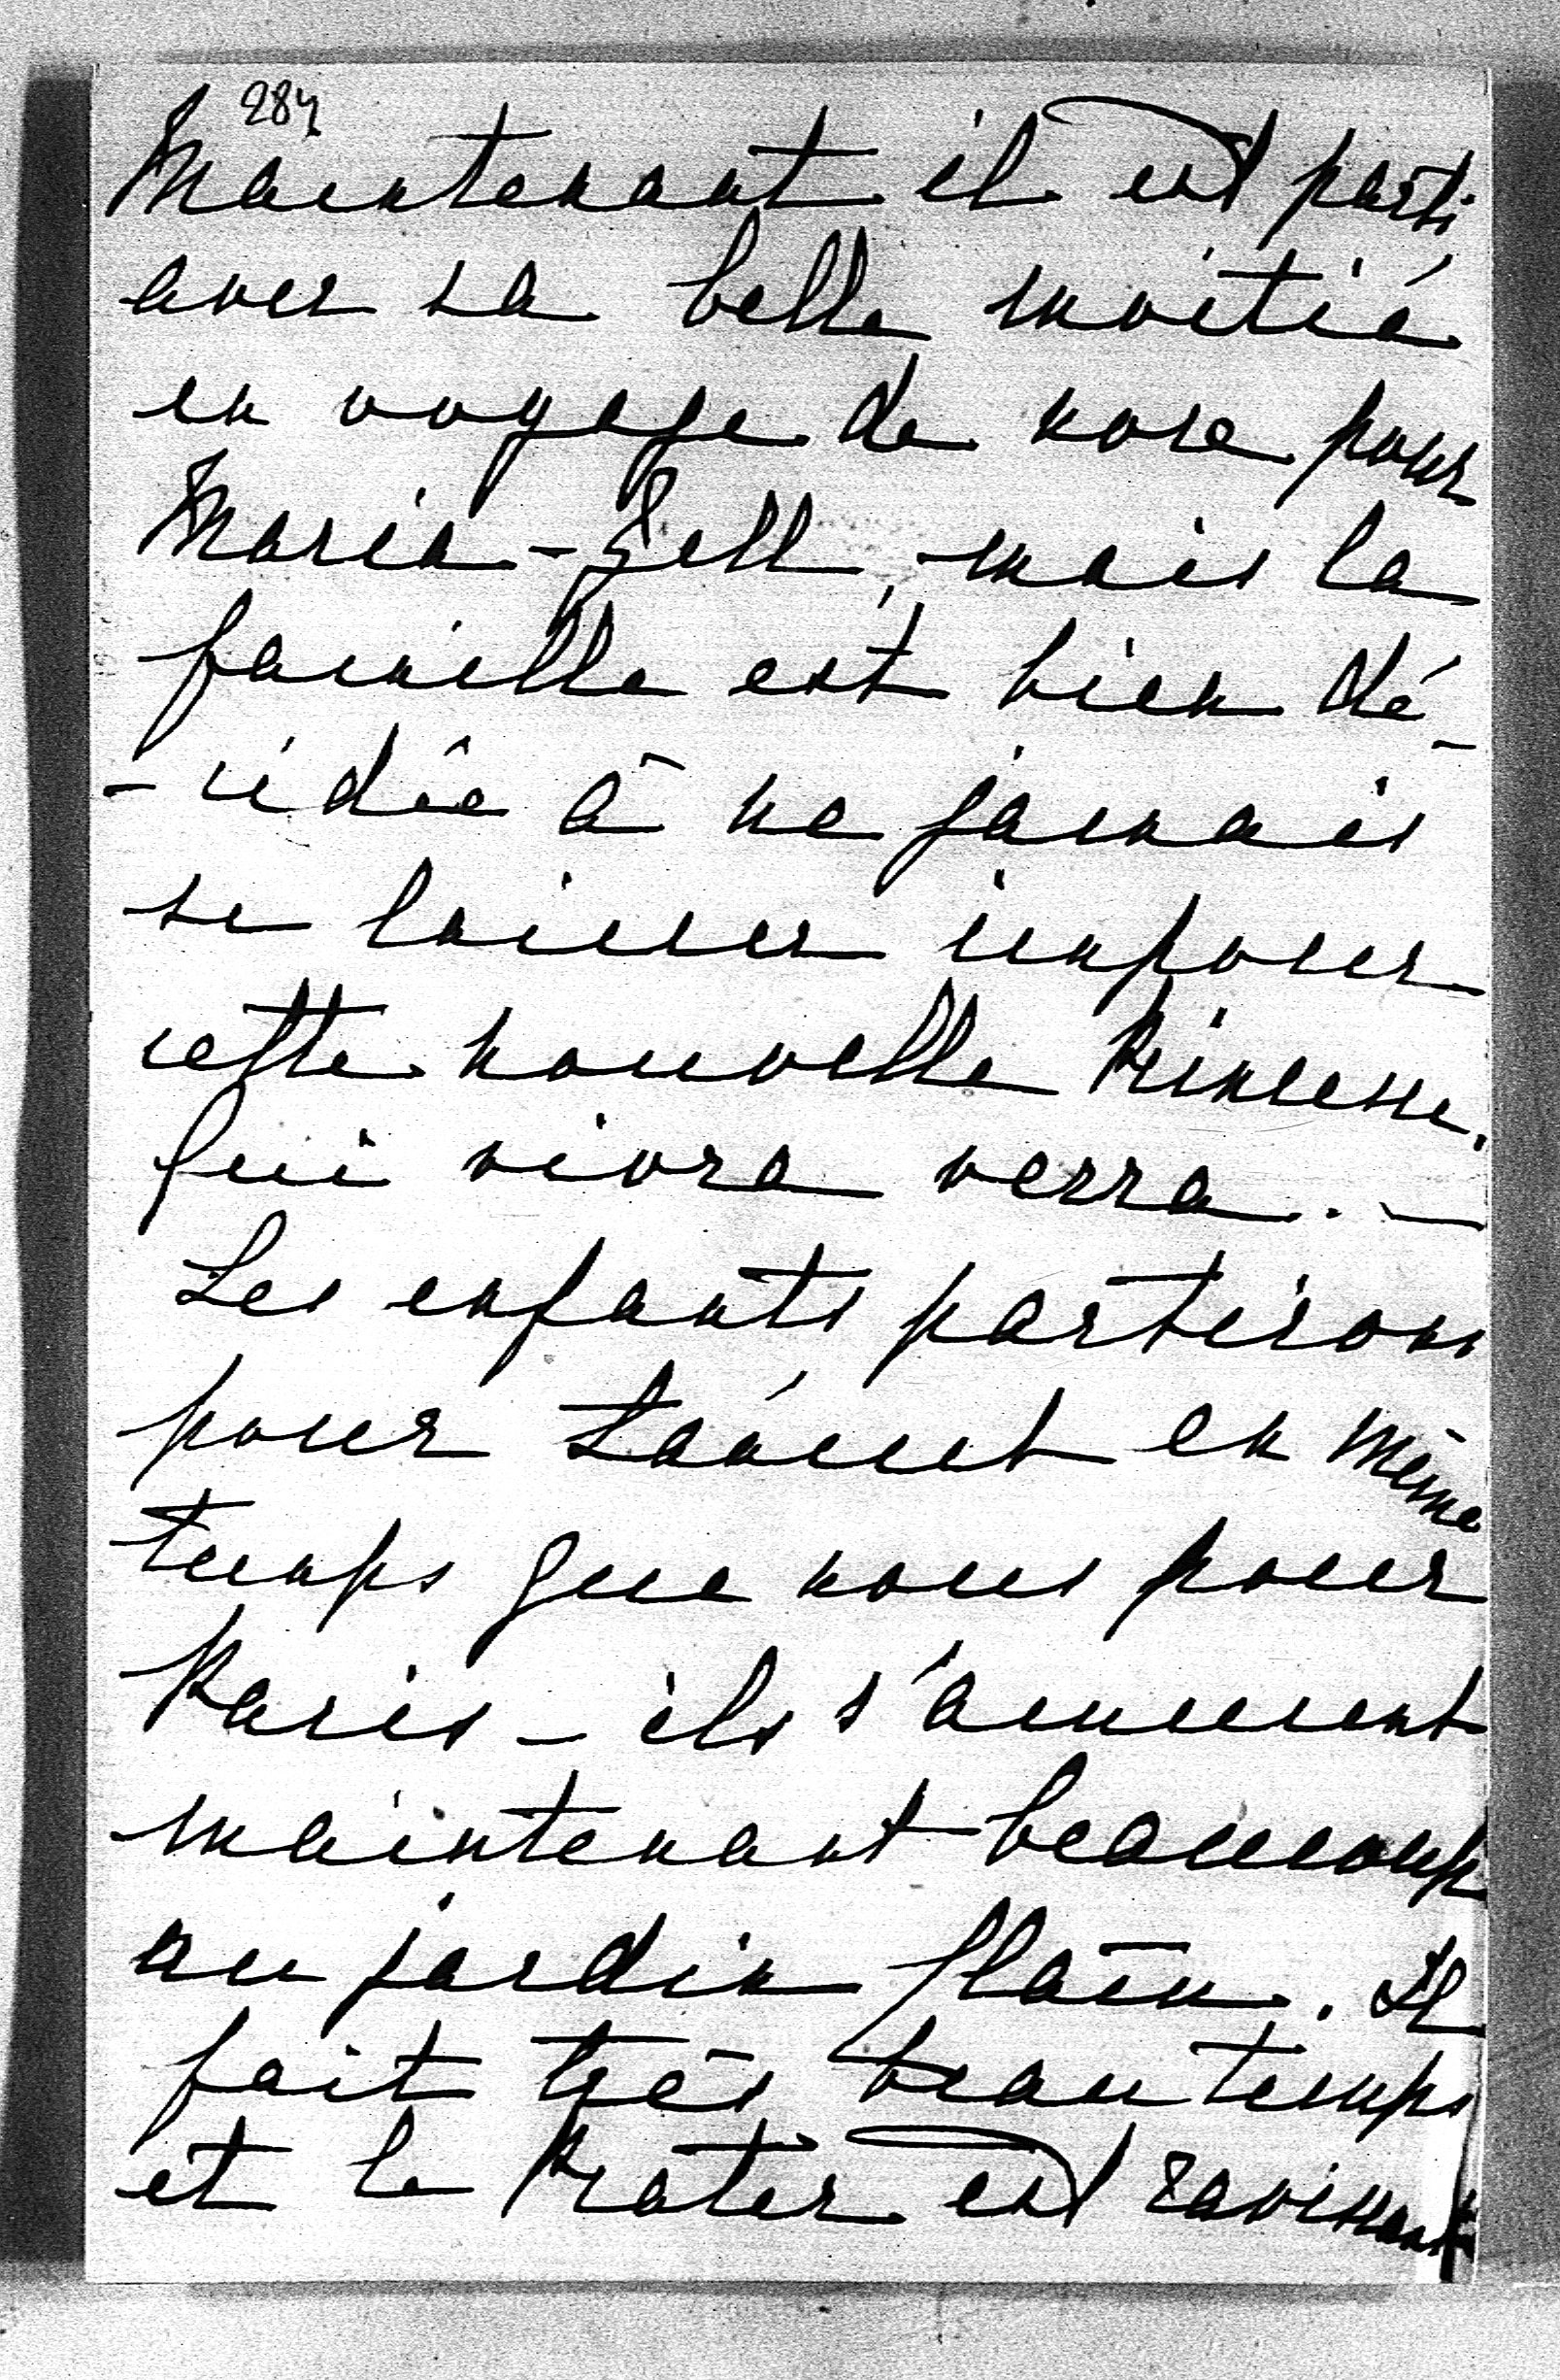 287
Maintenant il est parti
avec sa belle moitié
en voyage de noce pour
Maria-Zell, mais la
famille est bien dé-
-cidée à ne jamais
se laisser imposer
cette nouvelle Princesse.
Qui vivra verra. —
Les enfants partirons
pour en même
temps que nous pour
Paris - ils s'amusent
maintenant beaucoup
au jardin. Il
fait très beau temps
et le Prater est ravissant